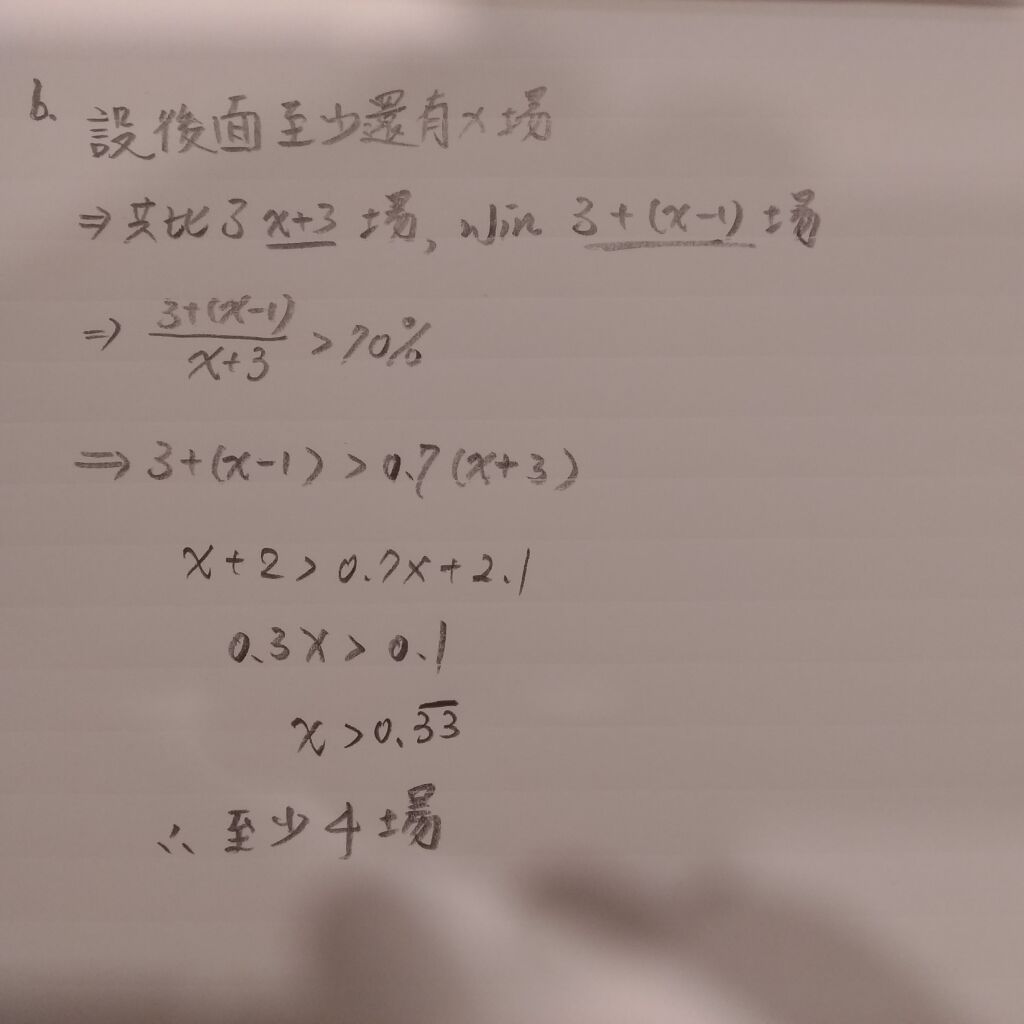 6. 設後面至少還有x場
⇒ 共比了 x+3 場, win 3+(x-1) 場
⇒ 3+(x-1) / x+3 > 70%
⇒ 3+(x-1) > 0.7(x+3)
x+2 > 0.7x+2.1
0.3x > 0.1
x > 0.3̅3̅
∴ 至少4場